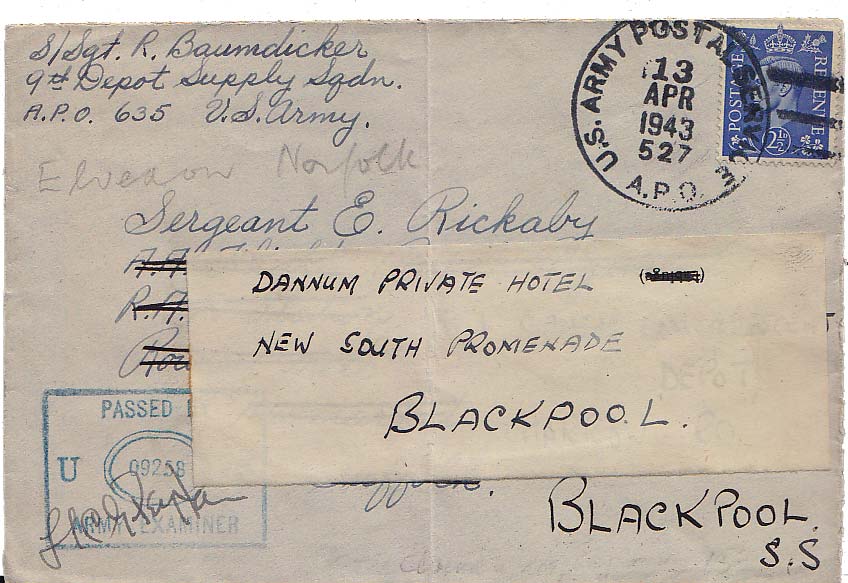 S/Sgt. R. Baumdicker
9th Depot Supply Sqdn.
A.P.O. 635 U.S. Army.
U.S. ARMY POSTAL SERVICE
13
APR
1943
527
A.P.O.
POSTAGE REVENUE
2½D
Elvedon Norfolk
Sergeant E. Rickaby
DANNUM PRIVATE HOTEL
NEW SOUTH PROMENADE
BLACKPOOL.
DEPOT
PASSED
U
09258
ARMY EXAMINER
BLACKPOOL.
S.S